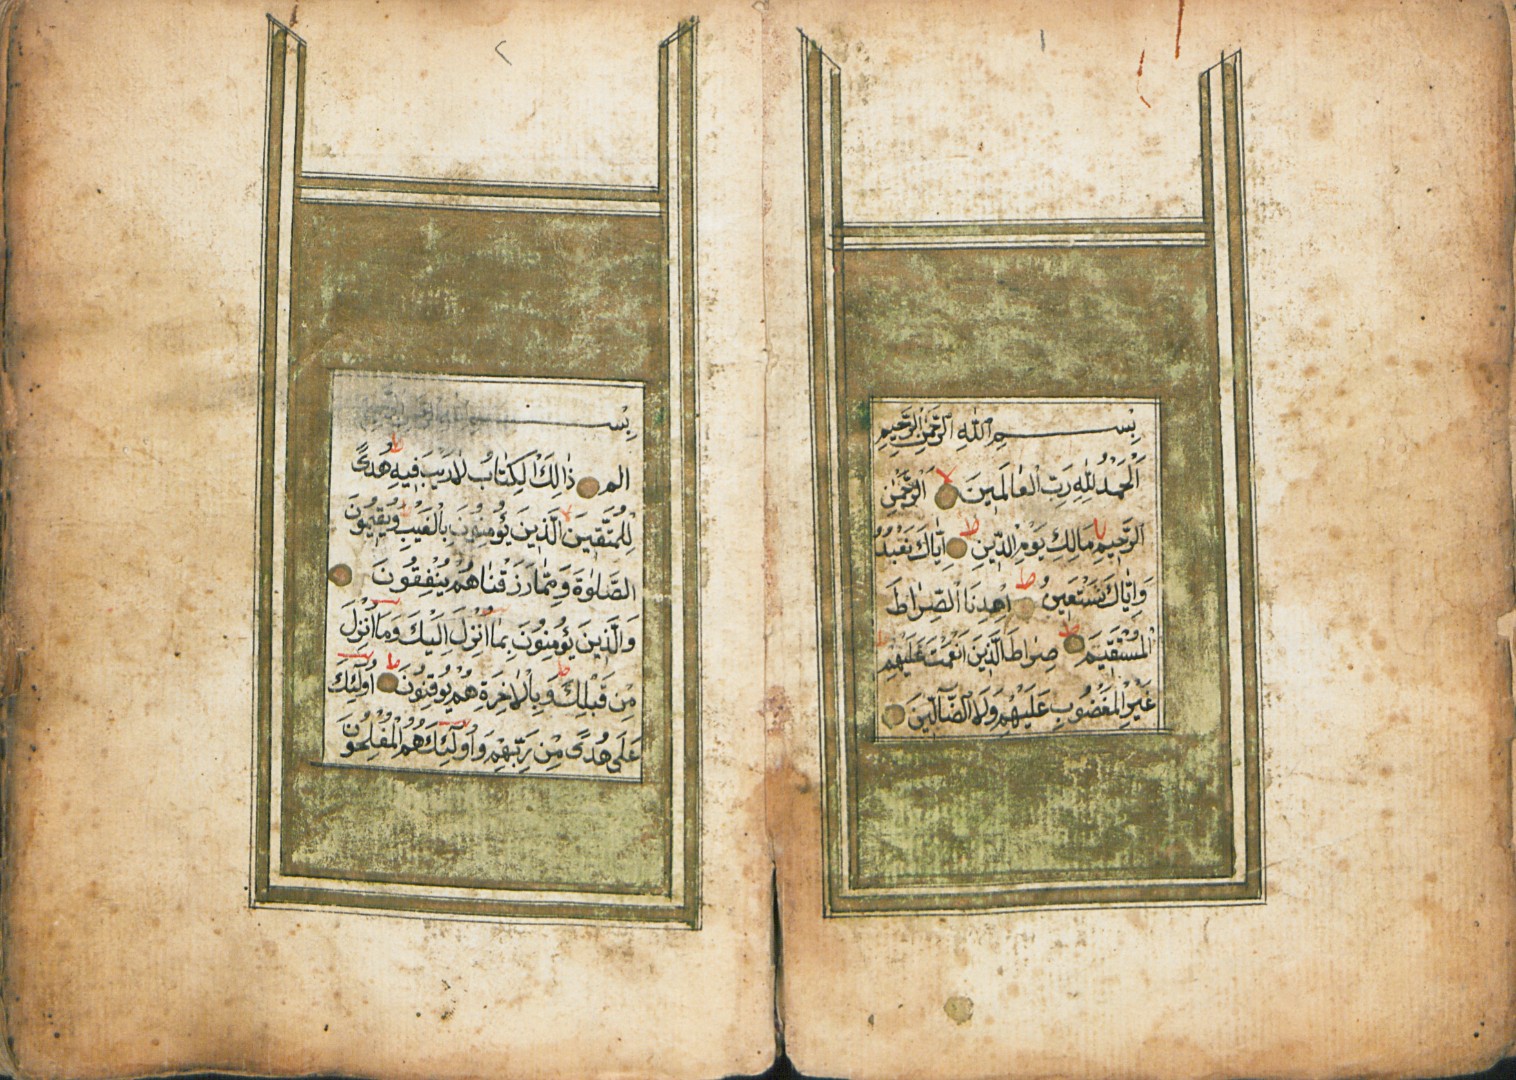 بِسْمِ اللهِ الرَّحْمٰنِ الرَّحِيمِ
اَلْحَمْدُ لِلّٰهِ رَبِّ الْعَالَمِينَ لا اَلرَّحْمٰنِ
الرَّحِيمِ لا مَالِكِ يَوْمِ الدِّينِ ط اِيَّاكَ نَعْبُدُ
وَاِيَّاكَ نَسْتَعِينُ ط اِهْدِنَا الصِّرَاطَ
الْمُسْتَقِيمَ ط صِرَاطَ الَّذِينَ اَنْعَمْتَ عَلَيْهِمْ
غَيْرِ الْمَغْضُوبِ عَلَيْهِمْ وَلَا الضَّٓالِّينَ
بِسْمِ
الم ذٰلِكَ الْكِتَابُ لَا رَيْبَ فِيهِ هُدًى
لِلْمُتَّقِينَ لا اَلَّذِينَ يُؤْمِنُونَ بِالْغَيْبِ وَيُقِيمُونَ
الصَّلٰوةَ وَمِمَّا رَزَقْنَاهُمْ يُنْفِقُونَ
وَالَّذِينَ يُؤْمِنُونَ بِمَا اُنْزِلَ اِلَيْكَ وَمَا اُنْزِلَ
مِنْ قَبْلِكَ وَبِالْاٰخِرَةِ هُمْ يُوقِنُونَ ط اُولٰٓئِكَ
عَلٰى هُدًى مِنْ رَبِّهِمْ وَاُولٰٓئِكَ هُمُ الْمُفْلِحُونَ